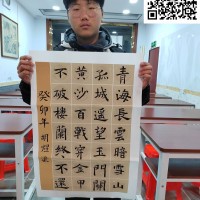 青海長雲暗雪山
孤城遥望玉門關
黄沙百戰穿金甲
不破樓蘭終不還
癸卯年 胡